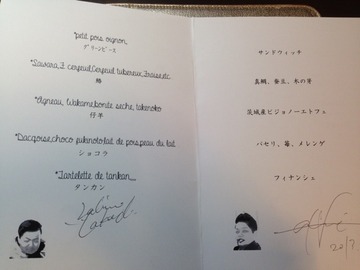 petit pois oignon
グリーンピース
Sawara,F cerfeuil,Cerfeuil tubereux,Fraise,etc
鰆
Agneau, Wakame,bonite seche, takenoko
仔羊
Dacqoise,choco
lait de pois,peau du lait
ショコラ
Tartelette de tankan
タンカン
サンドウィッチ
真鯛、独活、木の芽
茨城産ピジョノーエトフェ
パセリ、苺、メレンゲ
フィナンシェ
2017